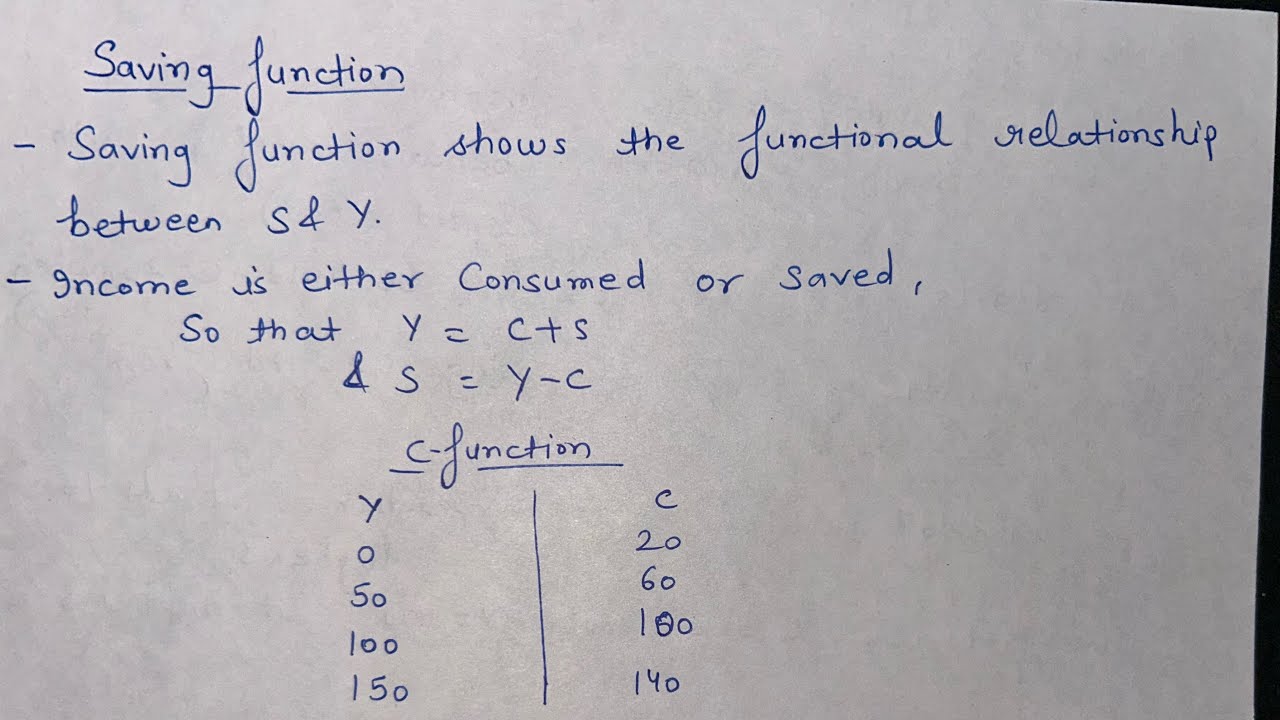 Saving function
- Saving function shows the functional relationship
between S & Y.
- Income is either Consumed or saved,
So that Y = C+S
& S = Y-C
C-function
Y C
0 20
50 60
100 100
150 140